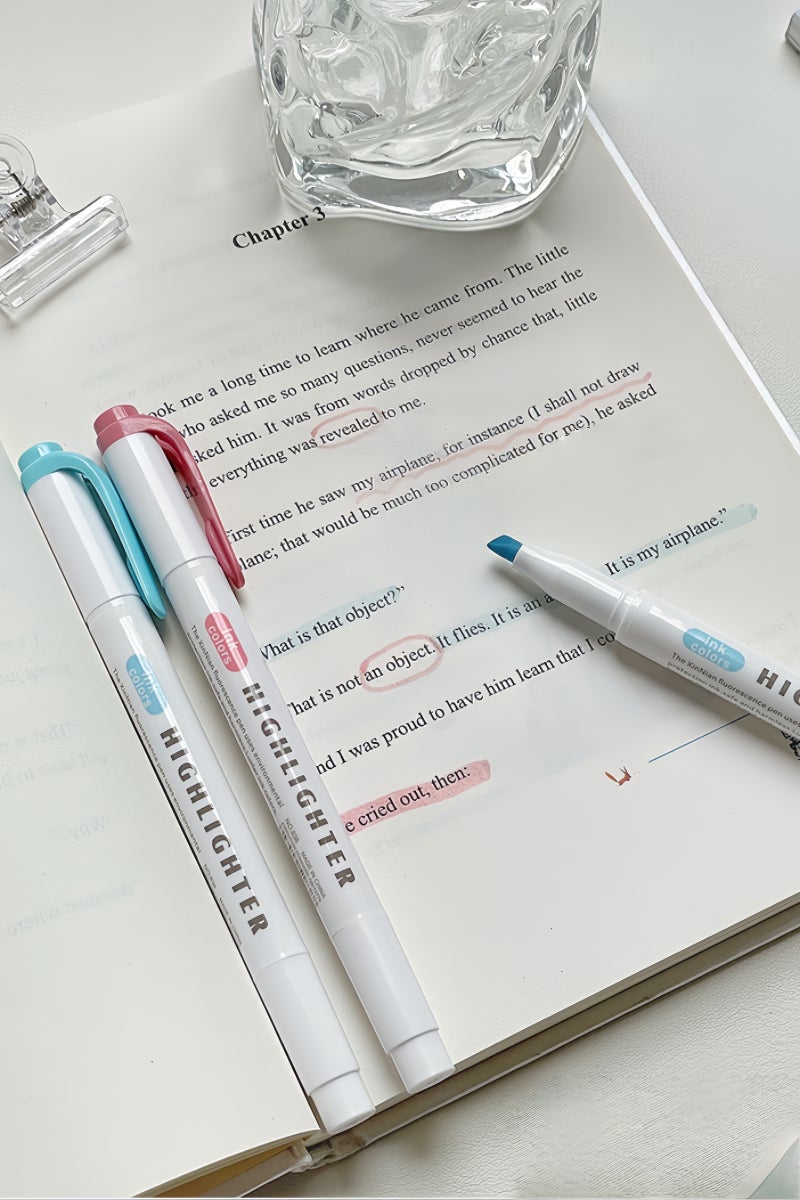 Chapter 3
ook me a long time to learn where he came from. The little
who asked me so many questions, never seemed to hear the
sked him. It was from words dropped by chance that, little
everything was revealed to me.
first time he saw my airplane, for instance (I shall not draw
lane; that would be much too complicated for me), he asked
What is that object?"
hat is not an object. It flies. It is an a It is my airplane."
nd I was proud to have him learn that I co
e cried out, then:
ink
colors
HIGHLIGHTER
The XinNian fluorescence pen uses environmental
ink
colors
HIGHLIGHTER
The XinNian fluorescence pen uses environmental
NO.838 MADE IN CHINA
ink
colors
HIG
The XinNian fluorescence pen uses
protection ink, safe and harmless